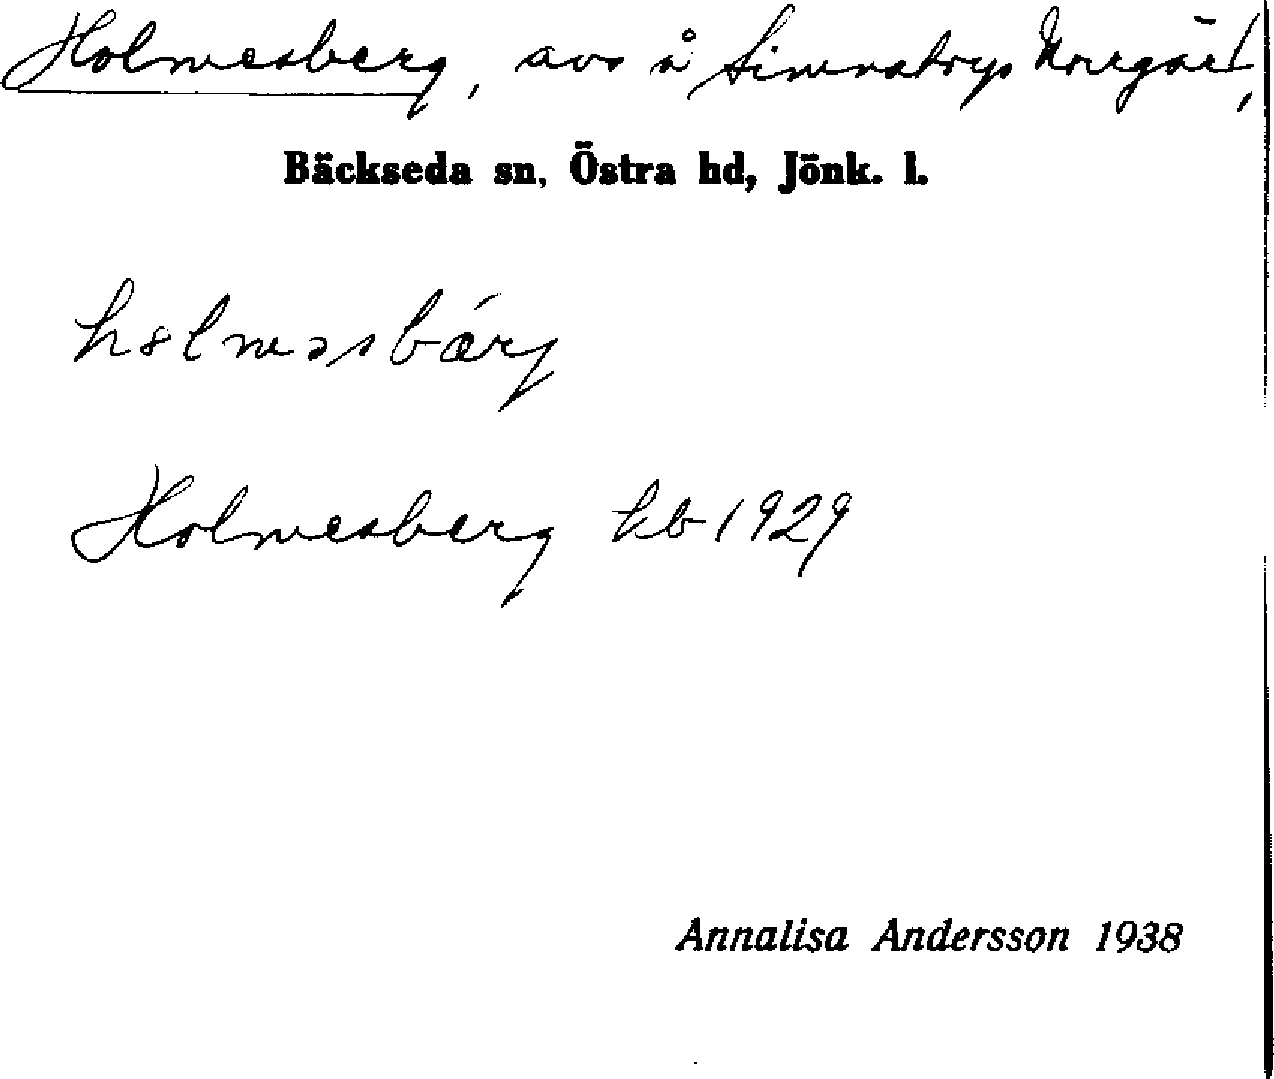 Holmesberg, avs å Simnatorps Norrgård,
Bäckseda sn, Östra hd, Jönk. l.
hɵlməsbǽrj
Holmesberg hb 1929
Annalisa Andersson 1938